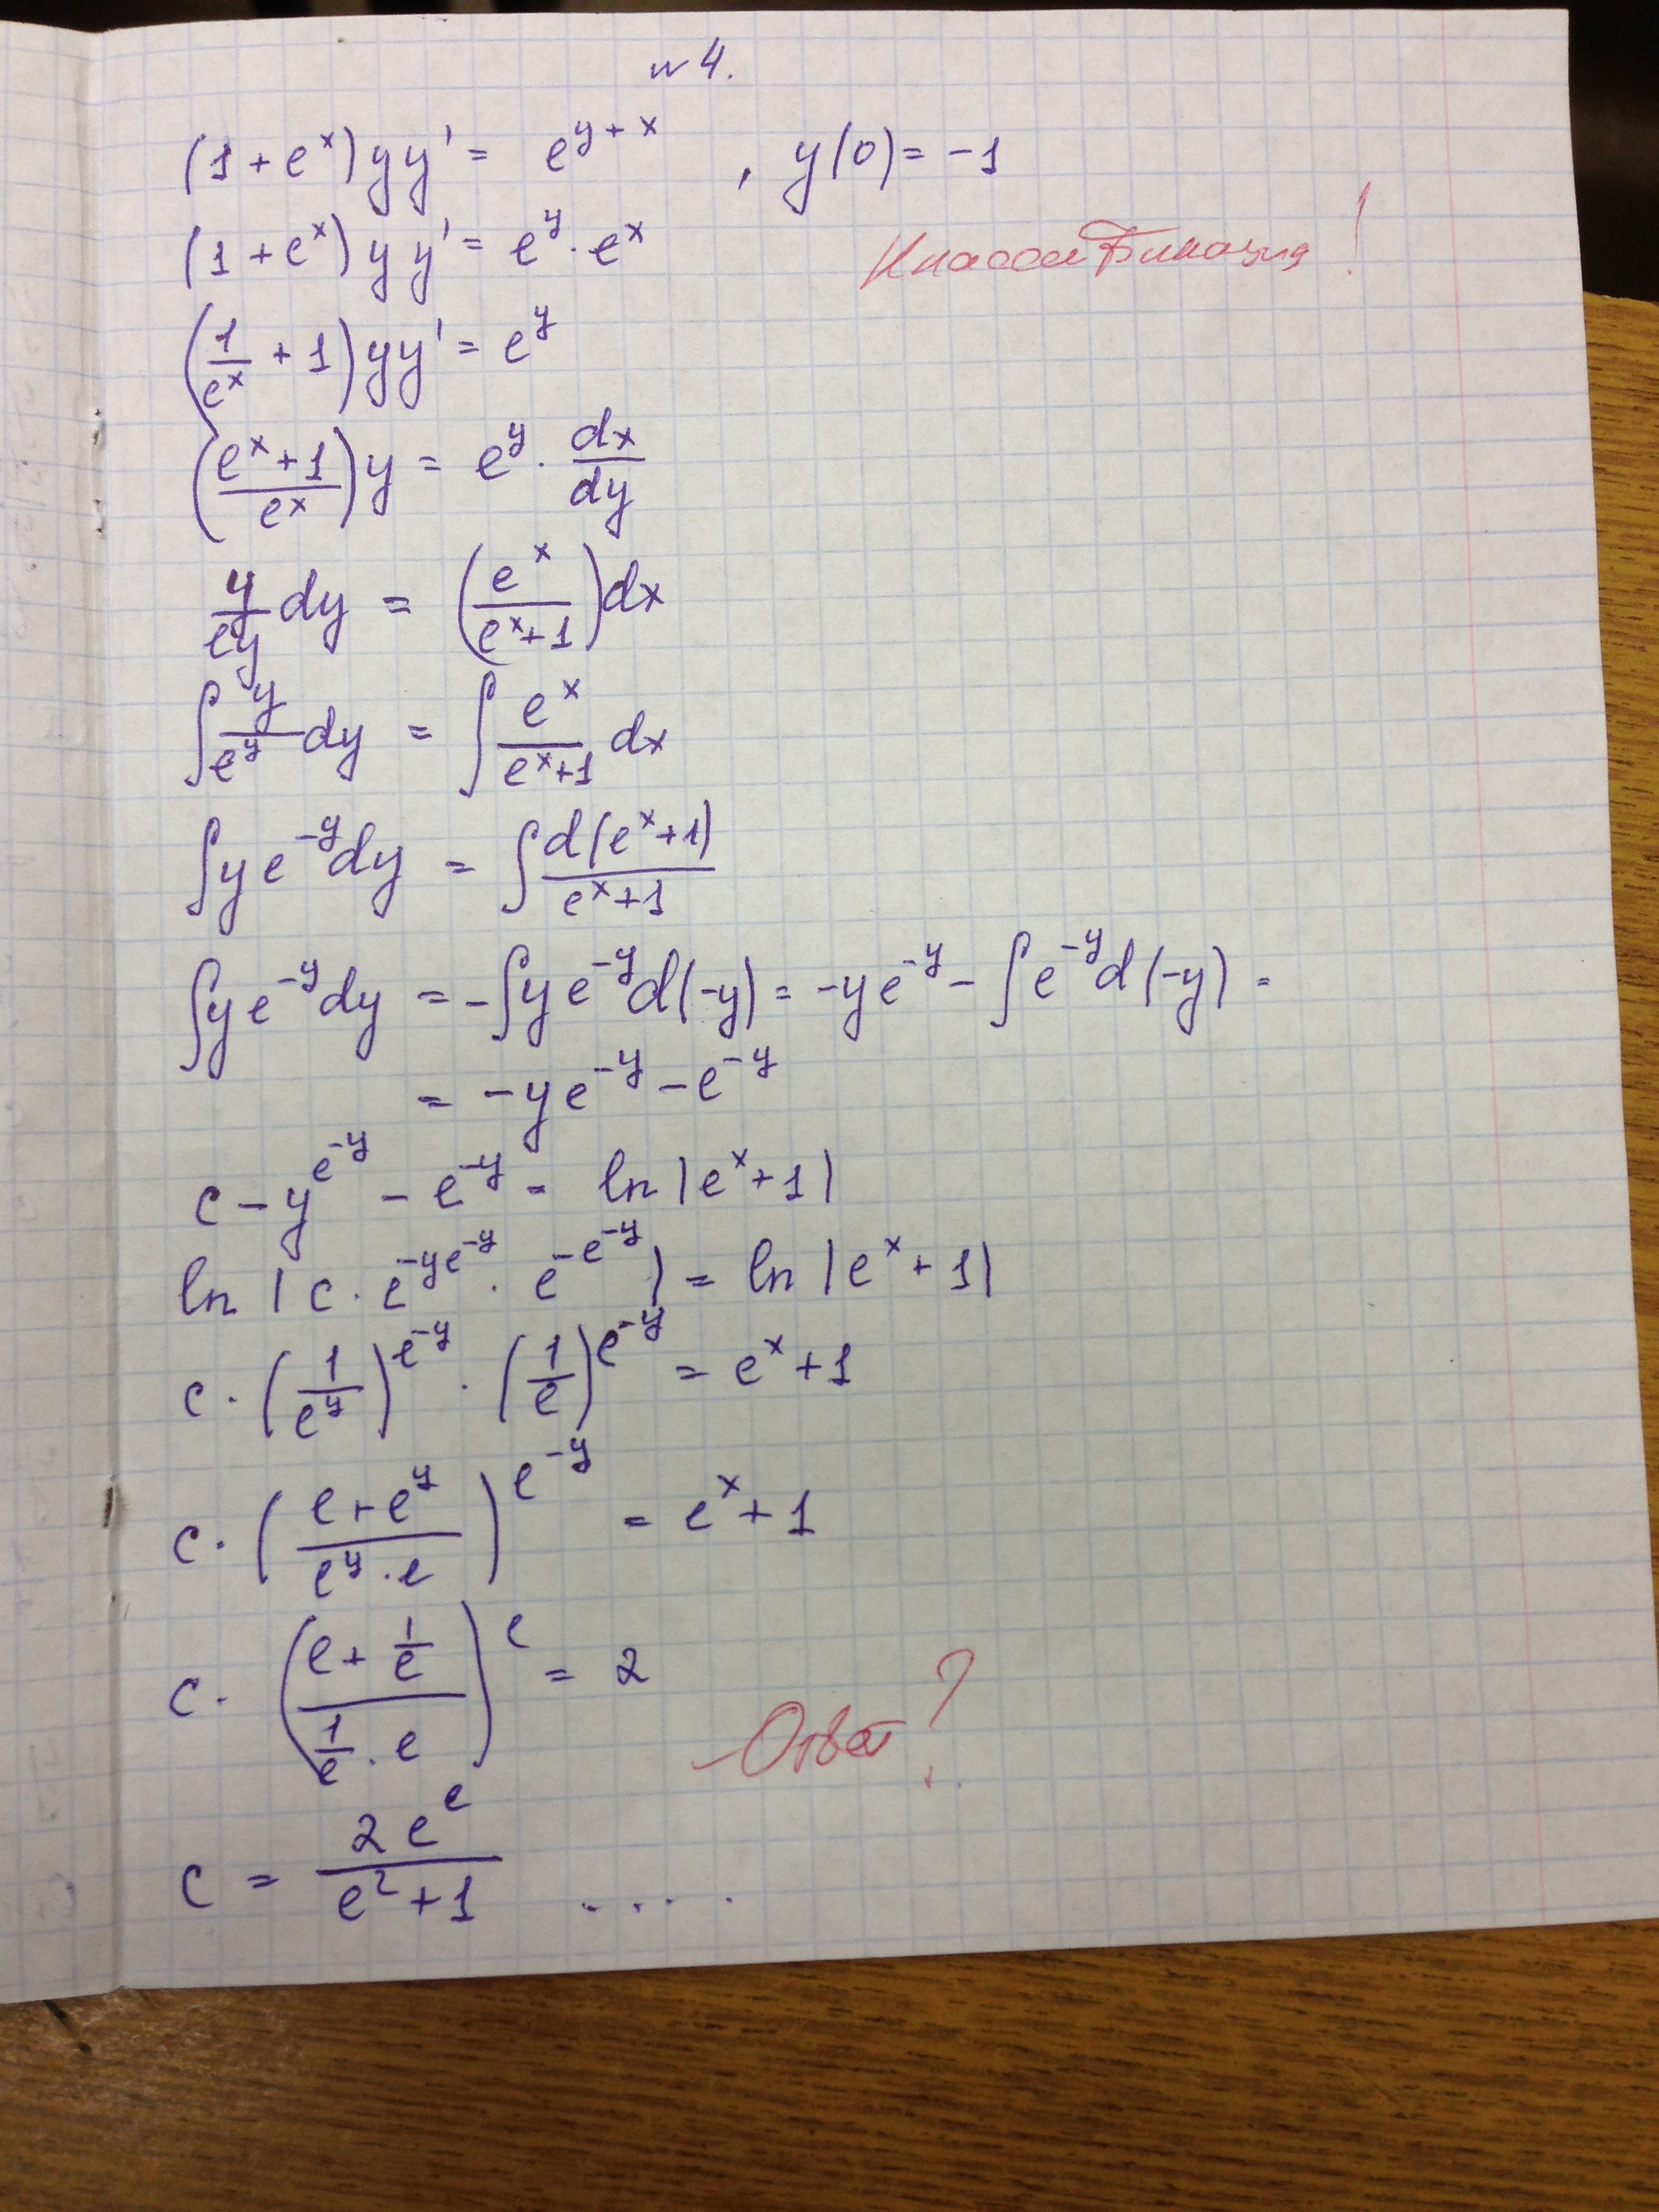 № 4.
(1 + e^x) y y' = e^{y + x} , y(0) = -1
Классификация!
(1 + e^x) y y' = e^y · e^x
(1/e^x + 1) y y' = e^y
((e^x + 1)/e^x) y = e^y · dx/dy
y/e^y dy = (e^x/(e^x + 1)) dx
∫ y/e^y dy = ∫ e^x/(e^x + 1) dx
∫ y e^{-y} dy = ∫ d(e^x + 1)/(e^x + 1)
∫ y e^{-y} dy = - ∫ y e^{-y} d(-y) = -y e^{-y} - ∫ e^{-y} d(-y) =
= -y e^{-y} - e^{-y}
c - y^{e^{-y}} - e^{-y} = ln |e^x + 1|
ln | c · e^{-y e^{-y}} · e^{-e^{-y}} | = ln |e^x + 1|
c · (1/e^y)^{e^{-y}} · (1/e)^{e^{-y}} = e^x + 1
c · ((e + e^y)/(e^y · e))^{e^{-y}} = e^x + 1
c · ((e + 1/e)/(1/e · e))^e = 2
Ответ?
c = 2e^e/(e^2 + 1) . . . .